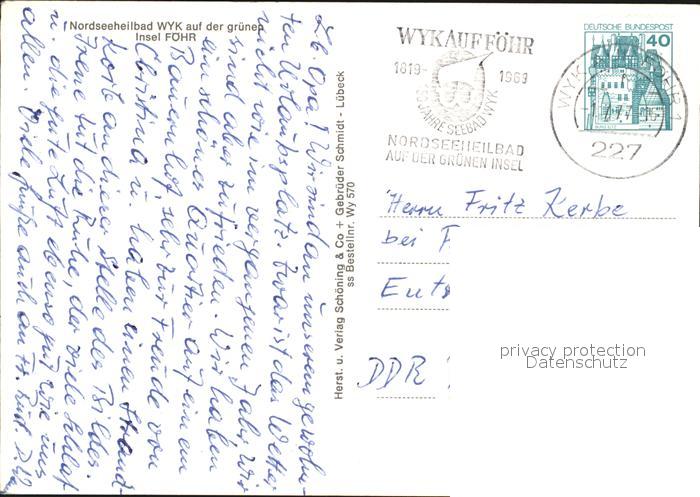 Nordseeheilbad WYK auf der grünen
Insel FÖHR
Lb. Opa! Wir sind an unserem gewohn-
ten Urlaubsplatz. Zwar ist das Wetter
nicht wie im vergangenen Jahr. Wir
sind aber zufrieden. Wir haben
ein schönes Quartier auf einem
Bauernhof, sehr zur Freude von
Christina u. haben einen Strand-
korb an dieser Stelle des Bildes.
Irene tut die Ruhe, der viele Schlaf
u. die gute Luft ebenso gut wie uns
allen. Viele Grüße auch an
Herst. u. Verlag Schöning & Co + Gebrüder Schmidt - Lübeck
ss Bestellnr. Wy 570
WYK AUF FÖHR
1819-1969
150 JAHRE SEEBAD WYK
NORDSEEHEILBAD
AUF DER GRÜNEN INSEL
DEUTSCHE BUNDESPOST
40
WYK AUF FÖHR 1
227
Herrn Fritz Kerbe
bei F
Euts
DDR
privacy protection
Datenschutz